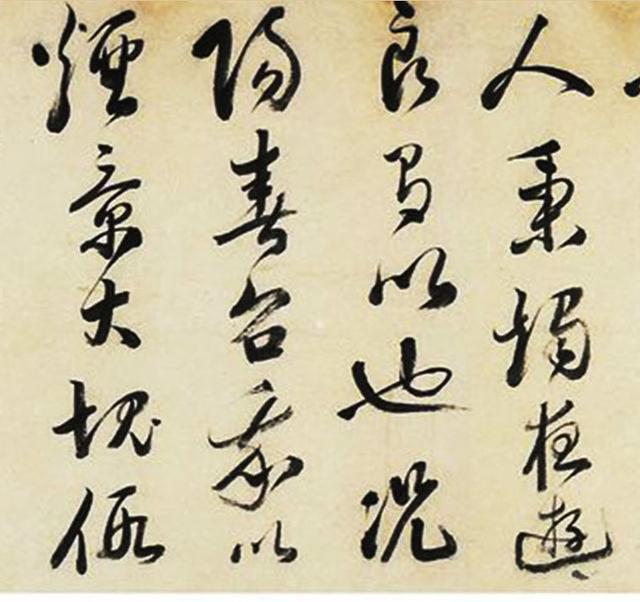 人秉燭夜遊
良有以也況
陽春召我以
煙景大塊假